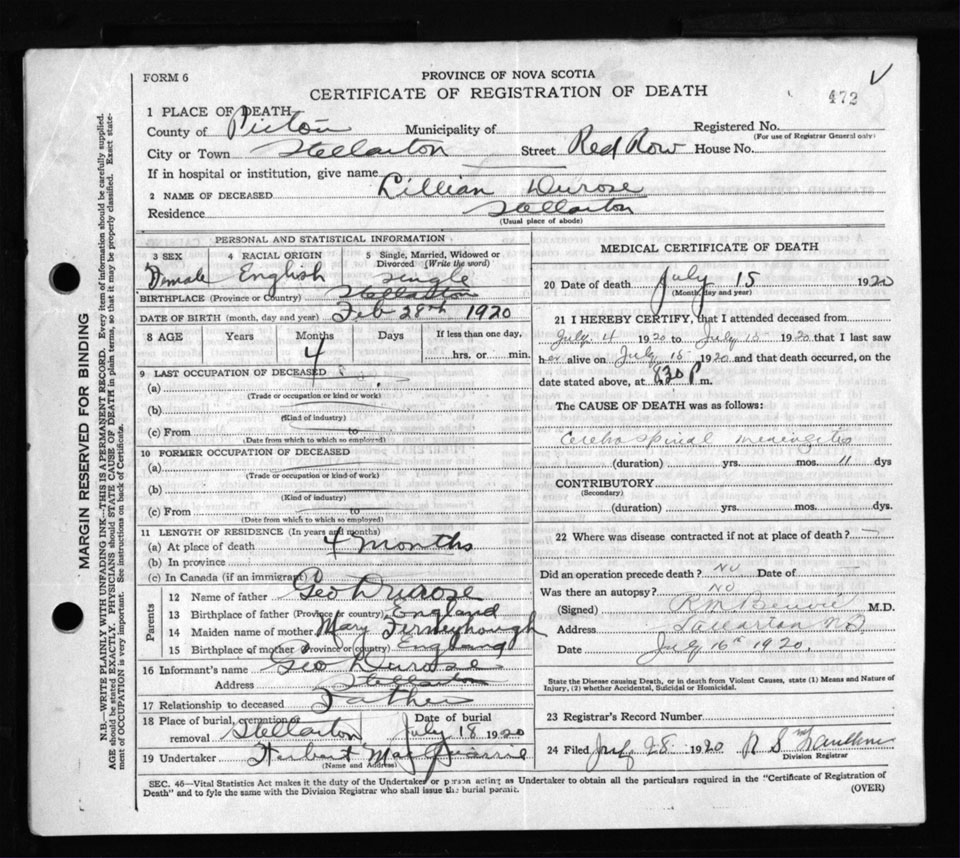 FORM 6
PROVINCE OF NOVA SCOTIA
CERTIFICATE OF REGISTRATION OF DEATH
472
1 PLACE OF DEATH
County of Pictou Municipality of
Registered No.
(For use of Registrar General only)
City or Town Stellarton Street Red Row House No.
If in hospital or institution, give name
2 NAME OF DECEASED Lillian Durose
Residence Stellarton
(Usual place of abode)
PERSONAL AND STATISTICAL INFORMATION
3 SEX 4 RACIAL ORIGIN 5 Single, Married, Widowed or Divorced (Write the word)
Female English Single
BIRTHPLACE (Province or Country) Stellarton
DATE OF BIRTH (month, day and year) Feb 28th 1920
8 AGE Years Months Days If less than one day,
4 hrs. or min.
9 LAST OCCUPATION OF DECEASED
(a)
(Trade or occupation or kind or work)
(b)
(Kind of industry)
(c) From to
(Date from which to which so employed)
10 FORMER OCCUPATION OF DECEASED
(a)
(Trade or occupation or kind or work)
(b)
(Kind of industry)
(c) From to
(Date from which to which so employed)
11 LENGTH OF RESIDENCE (In years and months)
(a) At place of death 4 months
(b) In province
(c) In Canada (if an immigrant)
Parents
12 Name of father Geo Durose
13 Birthplace of father (Province or country) England
14 Maiden name of mother Mary Ferneyhough
15 Birthplace of mother (Province or country) England
16 Informant's name Geo Durose
Address Stellarton
17 Relationship to deceased Father
18 Place of burial, cremation or removal Stellarton Date of burial July 18 1920
19 Undertaker Herbert MacQuarrie
(Name and Address)
MEDICAL CERTIFICATE OF DEATH
20 Date of death July 15 1920
(Month, day and year)
21 I HEREBY CERTIFY, that I attended deceased from
July 4 1920 to July 15 1920 that I last saw
her alive on July 15 1920 and that death occurred, on the
date stated above, at 8.30 P m.
The CAUSE OF DEATH was as follows:
Cerebro spinal meningitis
(duration) yrs. mos. 11 dys
CONTRIBUTORY
(Secondary)
(duration) yrs. mos. dys
22 Where was disease contracted if not at place of death? —
Did an operation precede death? No Date of —
Was there an autopsy? No
(Signed) M.D.
Address
Date July 16th 1920.
State the Disease causing Death, or in death from Violent Causes, state (1) Means and Nature of
Injury, (2) whether Accidental, Suicidal or Homicidal.
23 Registrar's Record Number
24 Filed 28 1920
Division Registrar
SEC. 46—Vital Statistics Act makes it the duty of the Undertaker or person acting as Undertaker to obtain all the particulars required in the "Certificate of Registration of
Death" and to fyle the same with the Division Registrar who shall issue the burial permit.
(OVER)
MARGIN RESERVED FOR BINDING
N.B.—WRITE PLAINLY WITH UNFADING INK—THIS IS A PERMANENT RECORD. Every item of information should be carefully supplied.
AGE should be stated EXACTLY. PHYSICIANS should STATE CAUSE OF DEATH in plain terms, so that it may be properly classified. Exact statement of OCCUPATION is very important. See instructions on back of Certificate.